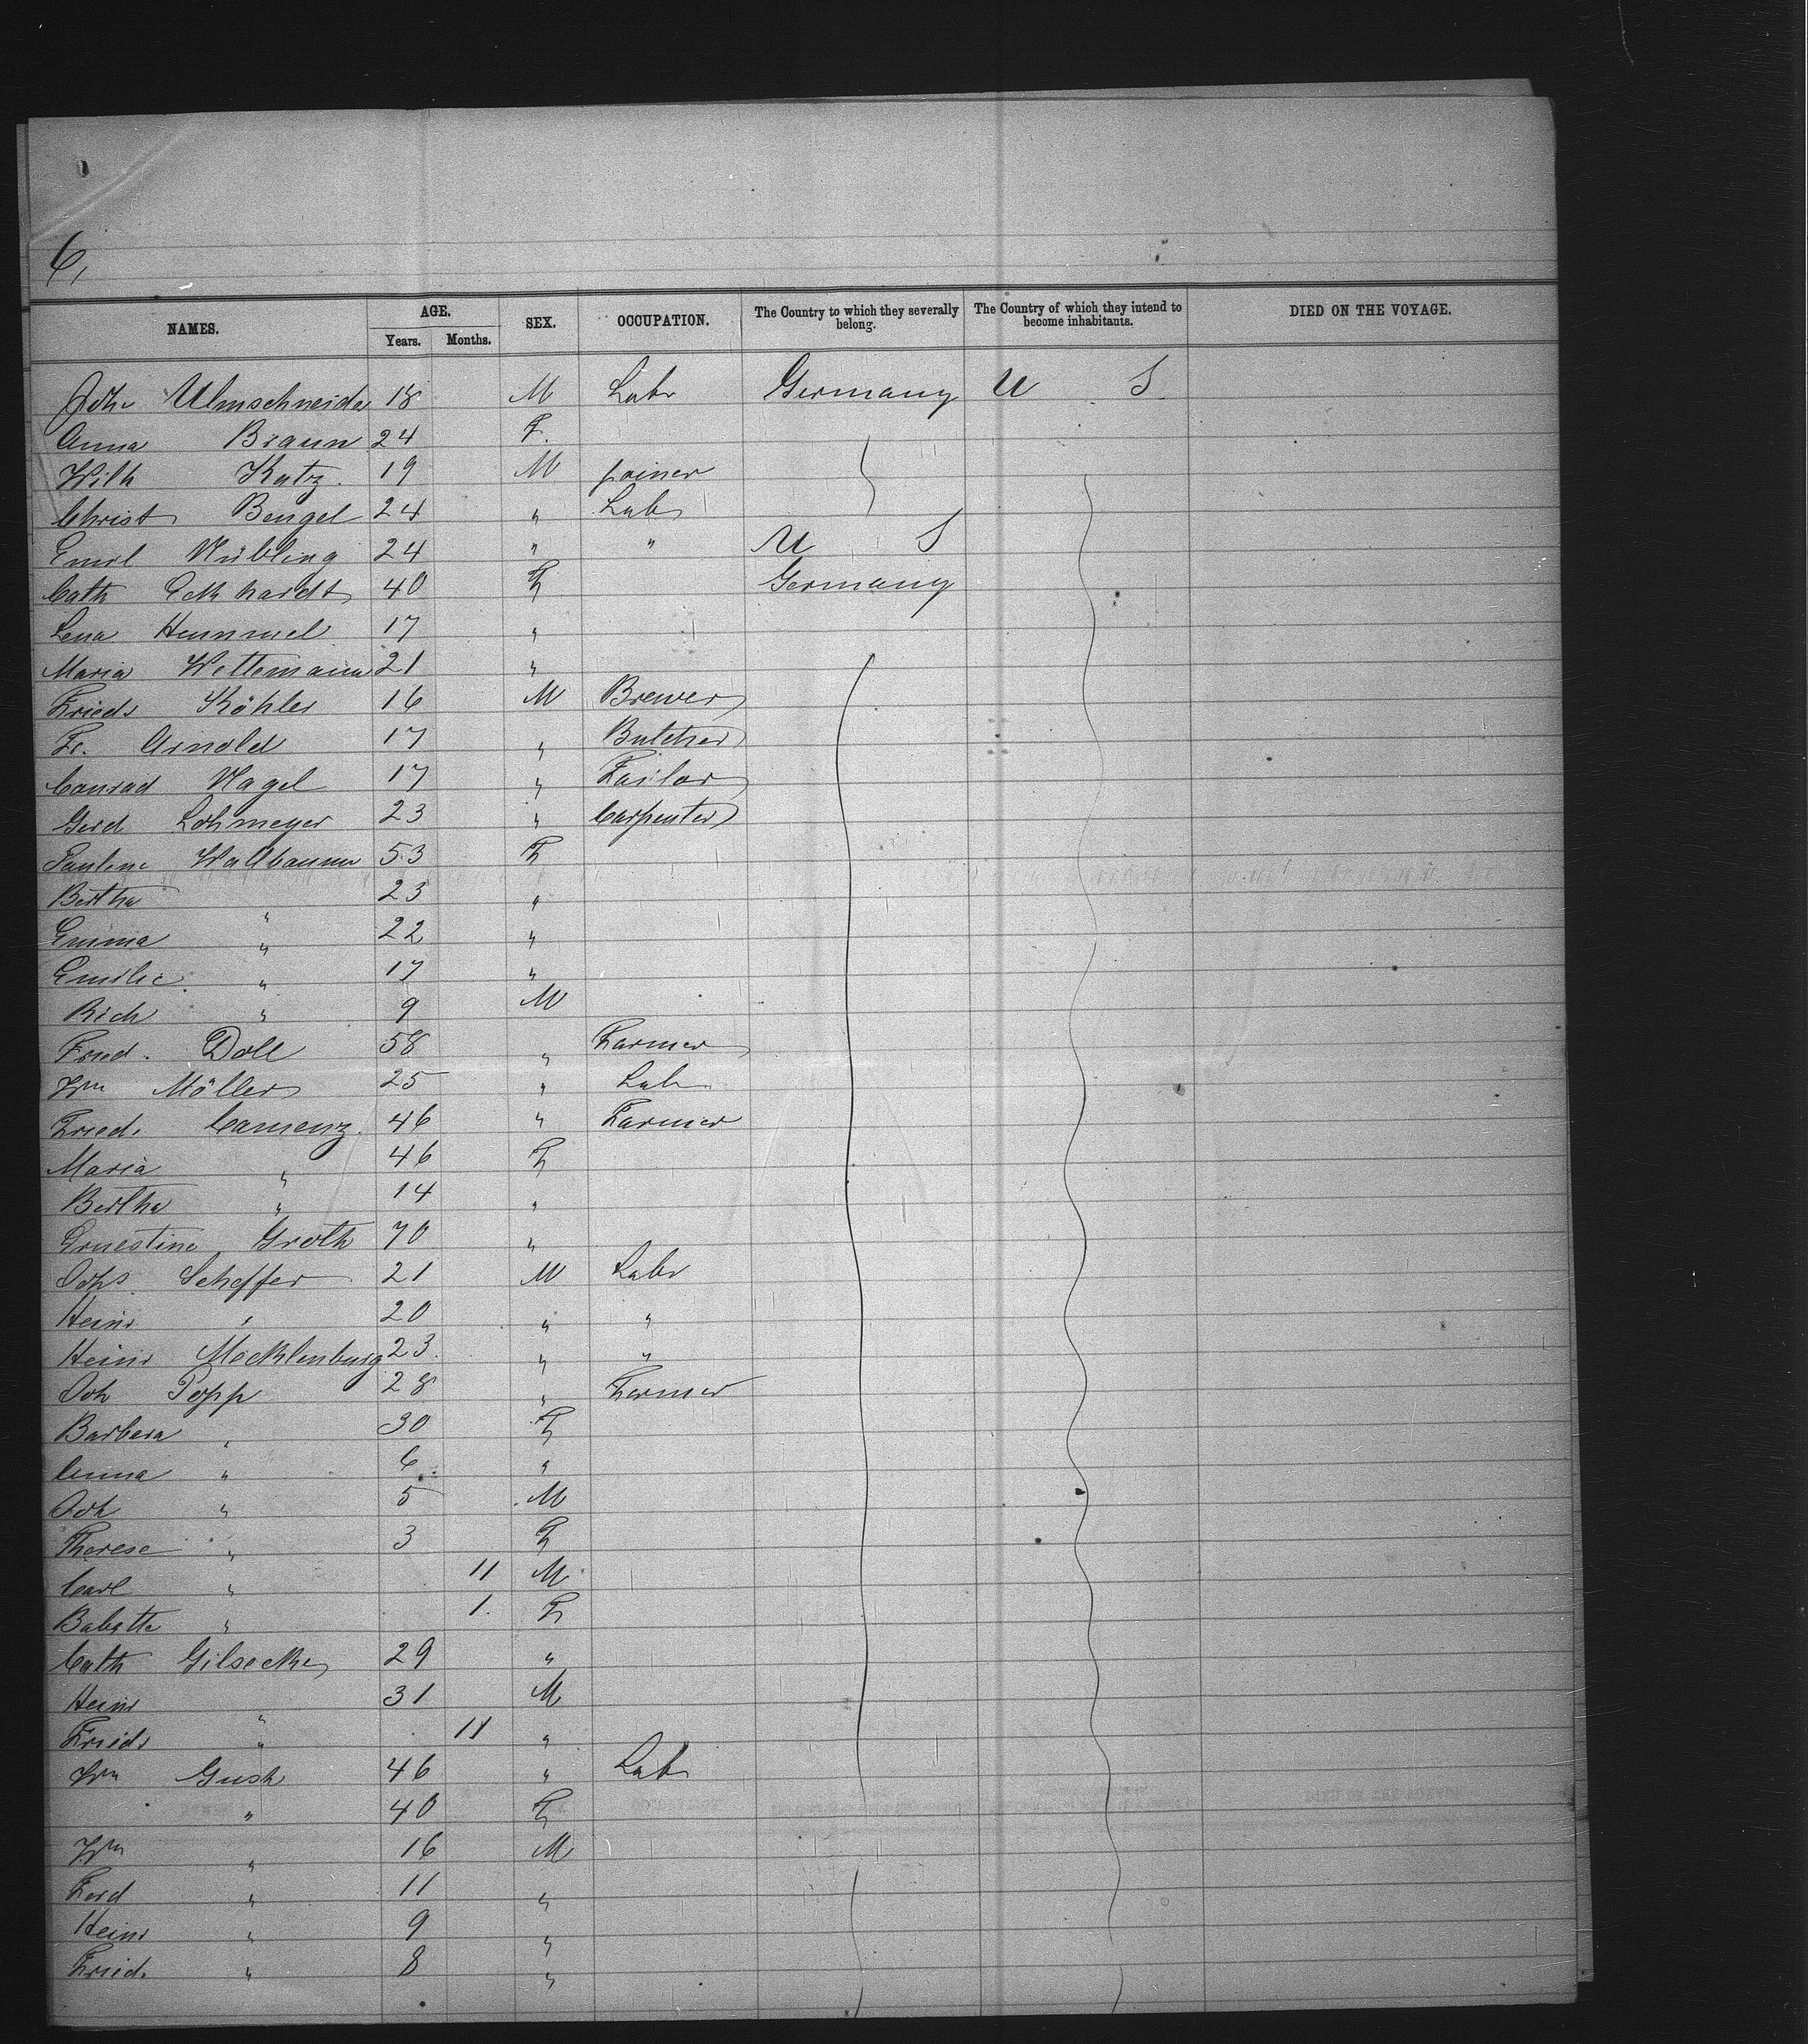 6,
NAMES. AGE. Years. Months. SEX. OCCUPATION. The Country to which they severally belong. The Country of which they intend to become inhabitants. DIED ON THE VOYAGE.
Joh. Ulmschneider 18 M Labr Germany U S
Anna Braun 24 F.
Wilh Katz. 19 M joiner
Christ Bengel 24 " Lab
Emil Nübling 24 " " U S
Cath Eckhardt 40 F Germany
Lena Hummel 17 "
Maria Wettemann 21 "
Friedr Köhler 16 M Brewer
Fr. Arnold 17 " Butcher
Conrad Nagel 17 " Tailor
Gerd Lohmeyer 23 " Carpenter
Pauline Wallbaum 53 F
Bertha " 23 "
Emma " 22 "
Emilie " 17 "
Rich " 9 M
Fried. Doll 58 " Farmer
Wm Möller 25 " Lab
Fried. Camenz. 46 " Farmer
Maria " 46 F
Bertha " 14 "
Ernestine Groth 70 "
Johs. Scheffer 21 M Labr
Heinr " 20 " "
Heinr Mecklenburg 23. " "
Joh Popp 28 " Farmer
Barbera " 30 F
Anna " 6 "
Joh " 5 M
Therese " 3 F
Carl " 11 M
Babette " 1. F
Cath Gilsecke 29 "
Heinr " 31 M
Friedr " 11 "
Wm Gush 46 " Lab
" 40 F
Wm " 16 M
Ferd " 11 "
Heinr " 9 "
Fried. " 8 "